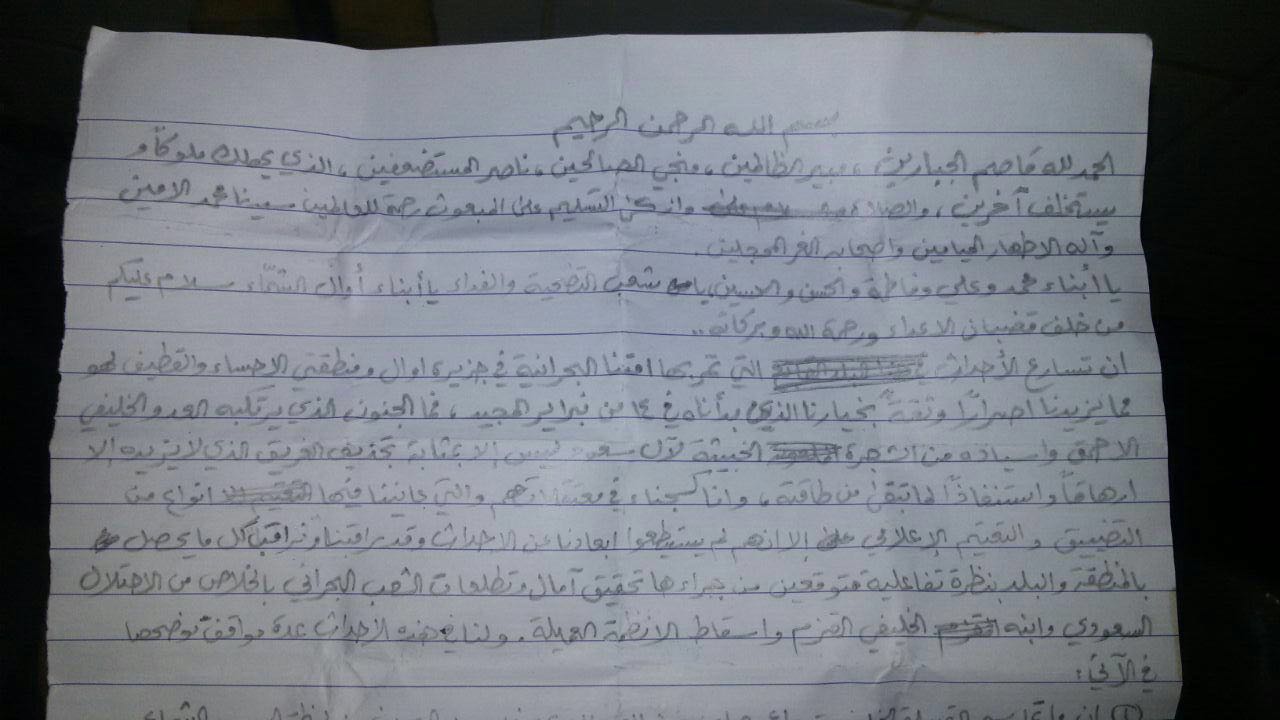 بسم الله الرحمن الرحيم
الحمد لله قاصم الجبارين، مبير الظالمين، منجي الصالحين، ناصر المستضعفين، الذي يهلك ملوكاً و
يستخلف آخرين، والصلاة وازكى التسليم على المبعوث رحمة للعالمين سيدنا محمد الامين
وآله الاطهار الميامين واصحابه الغر المحجلين.
يا أبناء محمد وعلي وفاطمة والحسن والحسين، يا شعب التضحية والفداء يا أبناء أوال الشمّاء سلام عليكم
من خلف قضبان الاعداء ورحمة الله وبركاته..
ان تسارع الأحداث التي تمر بها امتنا البحرانية في جزيرة اوال ومنطقتي الاحساء والقطيف لهو
مما يزيدنا اصراراً وثقة بخيارنا الذي بدأناه في ١٤ من فبراير المجيد، فما الجنون الذي يرتكبه العدو الخليفي
الاحمق واسياده من الشجرة الخبيثة لآل سعود ليس إلا بمثابة تجذيف الغريق الذي لا يزيده إلا
ارهاقاً واستنفاذاً لما تبقى من طاقته، واننا كسجناء في معتقلاتهم والتي عانينا فيها انواع من
التضييق والتعتيم الإعلامي إلا انهم لم يستطيعوا ابعادنا عن الاحداث وقد راقبنا ونراقب كل ما يحصل
بالمنطقة والبلد بنظرة تفاعلية متوقعين من جراءها تحقيق آمال وتطلعات الشعب البحراني بالخلاص من الاحتلال
السعودي وابنه الخليفي القزم واسقاط الانظمة العميلة. ولنا في هذه الأحداث عدة مواقف نوضحها
في الآتي: